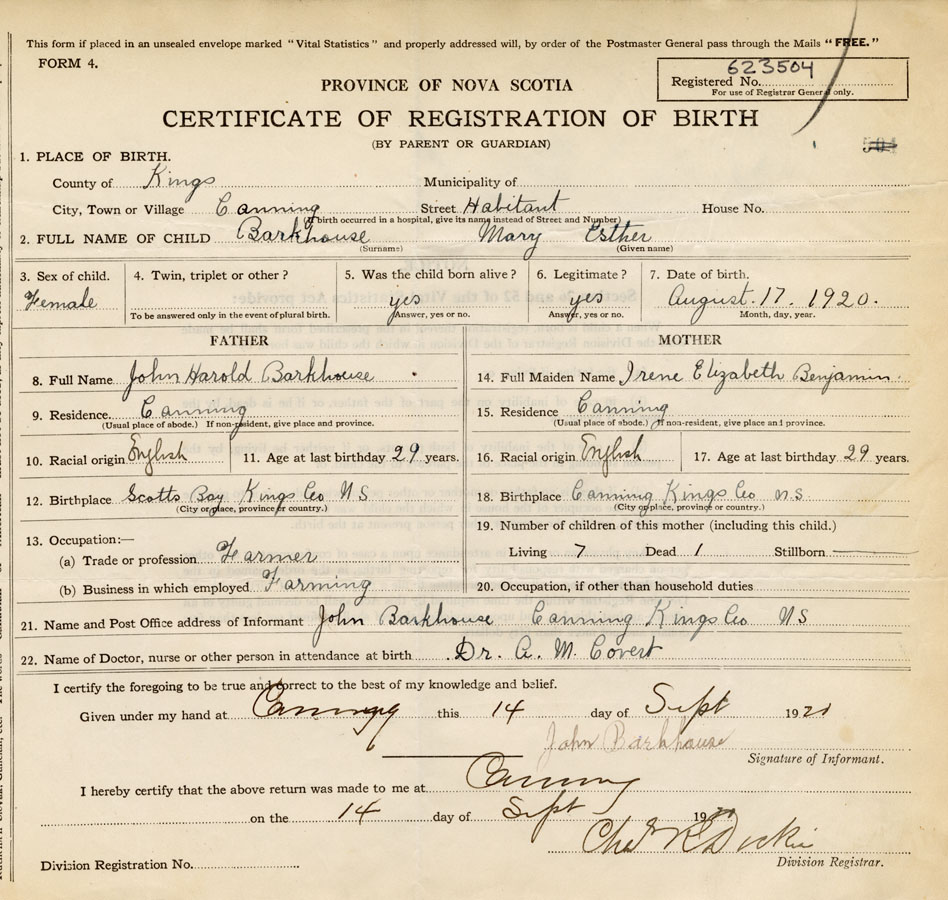 This form if placed in an unsealed envelope marked "Vital Statistics" and properly addressed will, by order of the Postmaster General pass through the Mails "FREE."
FORM 4.
623504
Registered No.
For use of Registrar General only.
PROVINCE OF NOVA SCOTIA
CERTIFICATE OF REGISTRATION OF BIRTH
(BY PARENT OR GUARDIAN)
504
1. PLACE OF BIRTH.
County of Kings Municipality of
City, Town or Village Canning Street Habitant House No.
(If birth occurred in a hospital, give its name instead of Street and Number)
2. FULL NAME OF CHILD Barkhouse Mary Esther
(Surname) (Given name)
3. Sex of child. 4. Twin, triplet or other? 5. Was the child born alive? 6. Legitimate? 7. Date of birth.
Female yes yes August. 17. 1920.
To be answered only in the event of plural birth. Answer, yes or no. Answer, yes or no. Month, day, year.
FATHER MOTHER
8. Full Name John Harold Barkhouse 14. Full Maiden Name Irene Elizabeth Benjamin
9. Residence. Canning 15. Residence Canning
(Usual place of abode.) If non-resident, give place and province. (Usual place of abode.) If non-resident, give place and province.
10. Racial origin English 11. Age at last birthday 29 years. 16. Racial origin English 17. Age at last birthday 29 years.
12. Birthplace Scotts Bay Kings Co N S 18. Birthplace Canning Kings Co n.s.
(City or place, province or country.) (City or place, province or country.)
19. Number of children of this mother (including this child.)
13. Occupation:—
Living 7 Dead 1 Stillborn
(a) Trade or profession Farmer
(b) Business in which employed Farming 20. Occupation, if other than household duties
21. Name and Post Office address of Informant John Barkhouse Canning Kings Co N S
22. Name of Doctor, nurse or other person in attendance at birth Dr. A. M. Covert
I certify the foregoing to be true and correct to the best of my knowledge and belief.
Given under my hand at Canning this 14 day of Sept 192
John Barkhouse
Signature of Informant.
I hereby certify that the above return was made to me at Canning
on the 14 day of Sept 19
Division Registration No. Division Registrar.